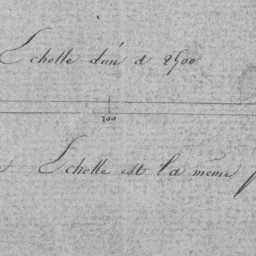 Echelle d'un à 2500
200
Echelle est la même